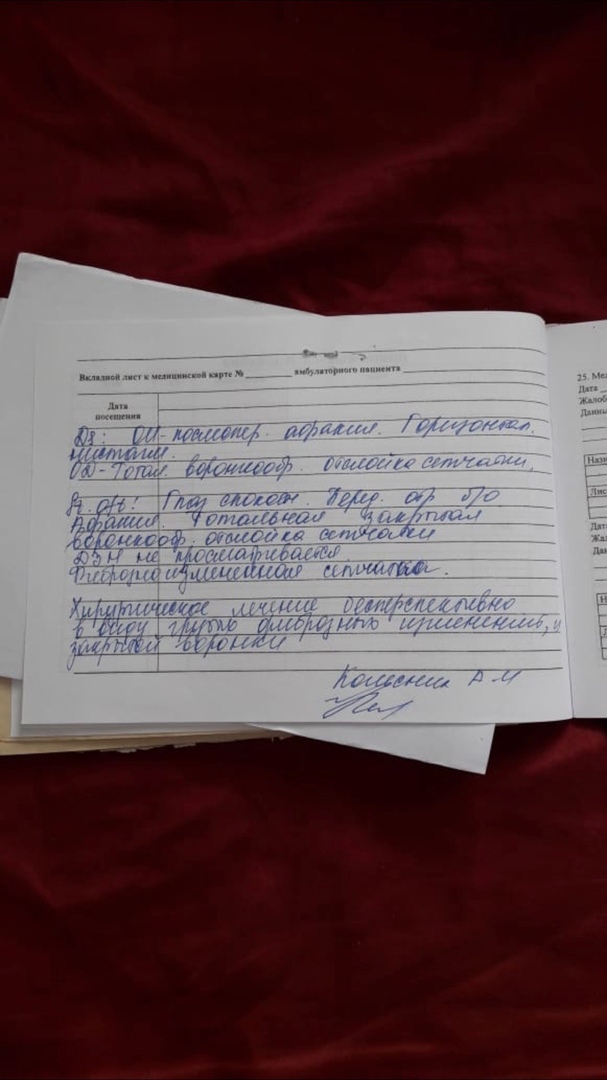 Вкладной лист к медицинской карте № ________ амбулаторного пациента ________
Дата
посещения
Ds: OU-послеопер. афакия. Горизонтал.
нистагм.
OD-Тотал. воронкообр. отслойка сетчатки.
Глаз спокоен. Перед. отр б/о
Афакия. Тотальная закрытая
воронкооб. отслойка сетчатки
ДЗН не просматривается.
Фиброзно измененная сетчатка.
Хирургическое лечение бесперспективно
в виду грубых фиброзных изменений, и
закрытой воронки
Колесник А М
25. Мед
Дата
Жалоб
Данны
Назн
Лис
Дат
Жал
Дан
Н